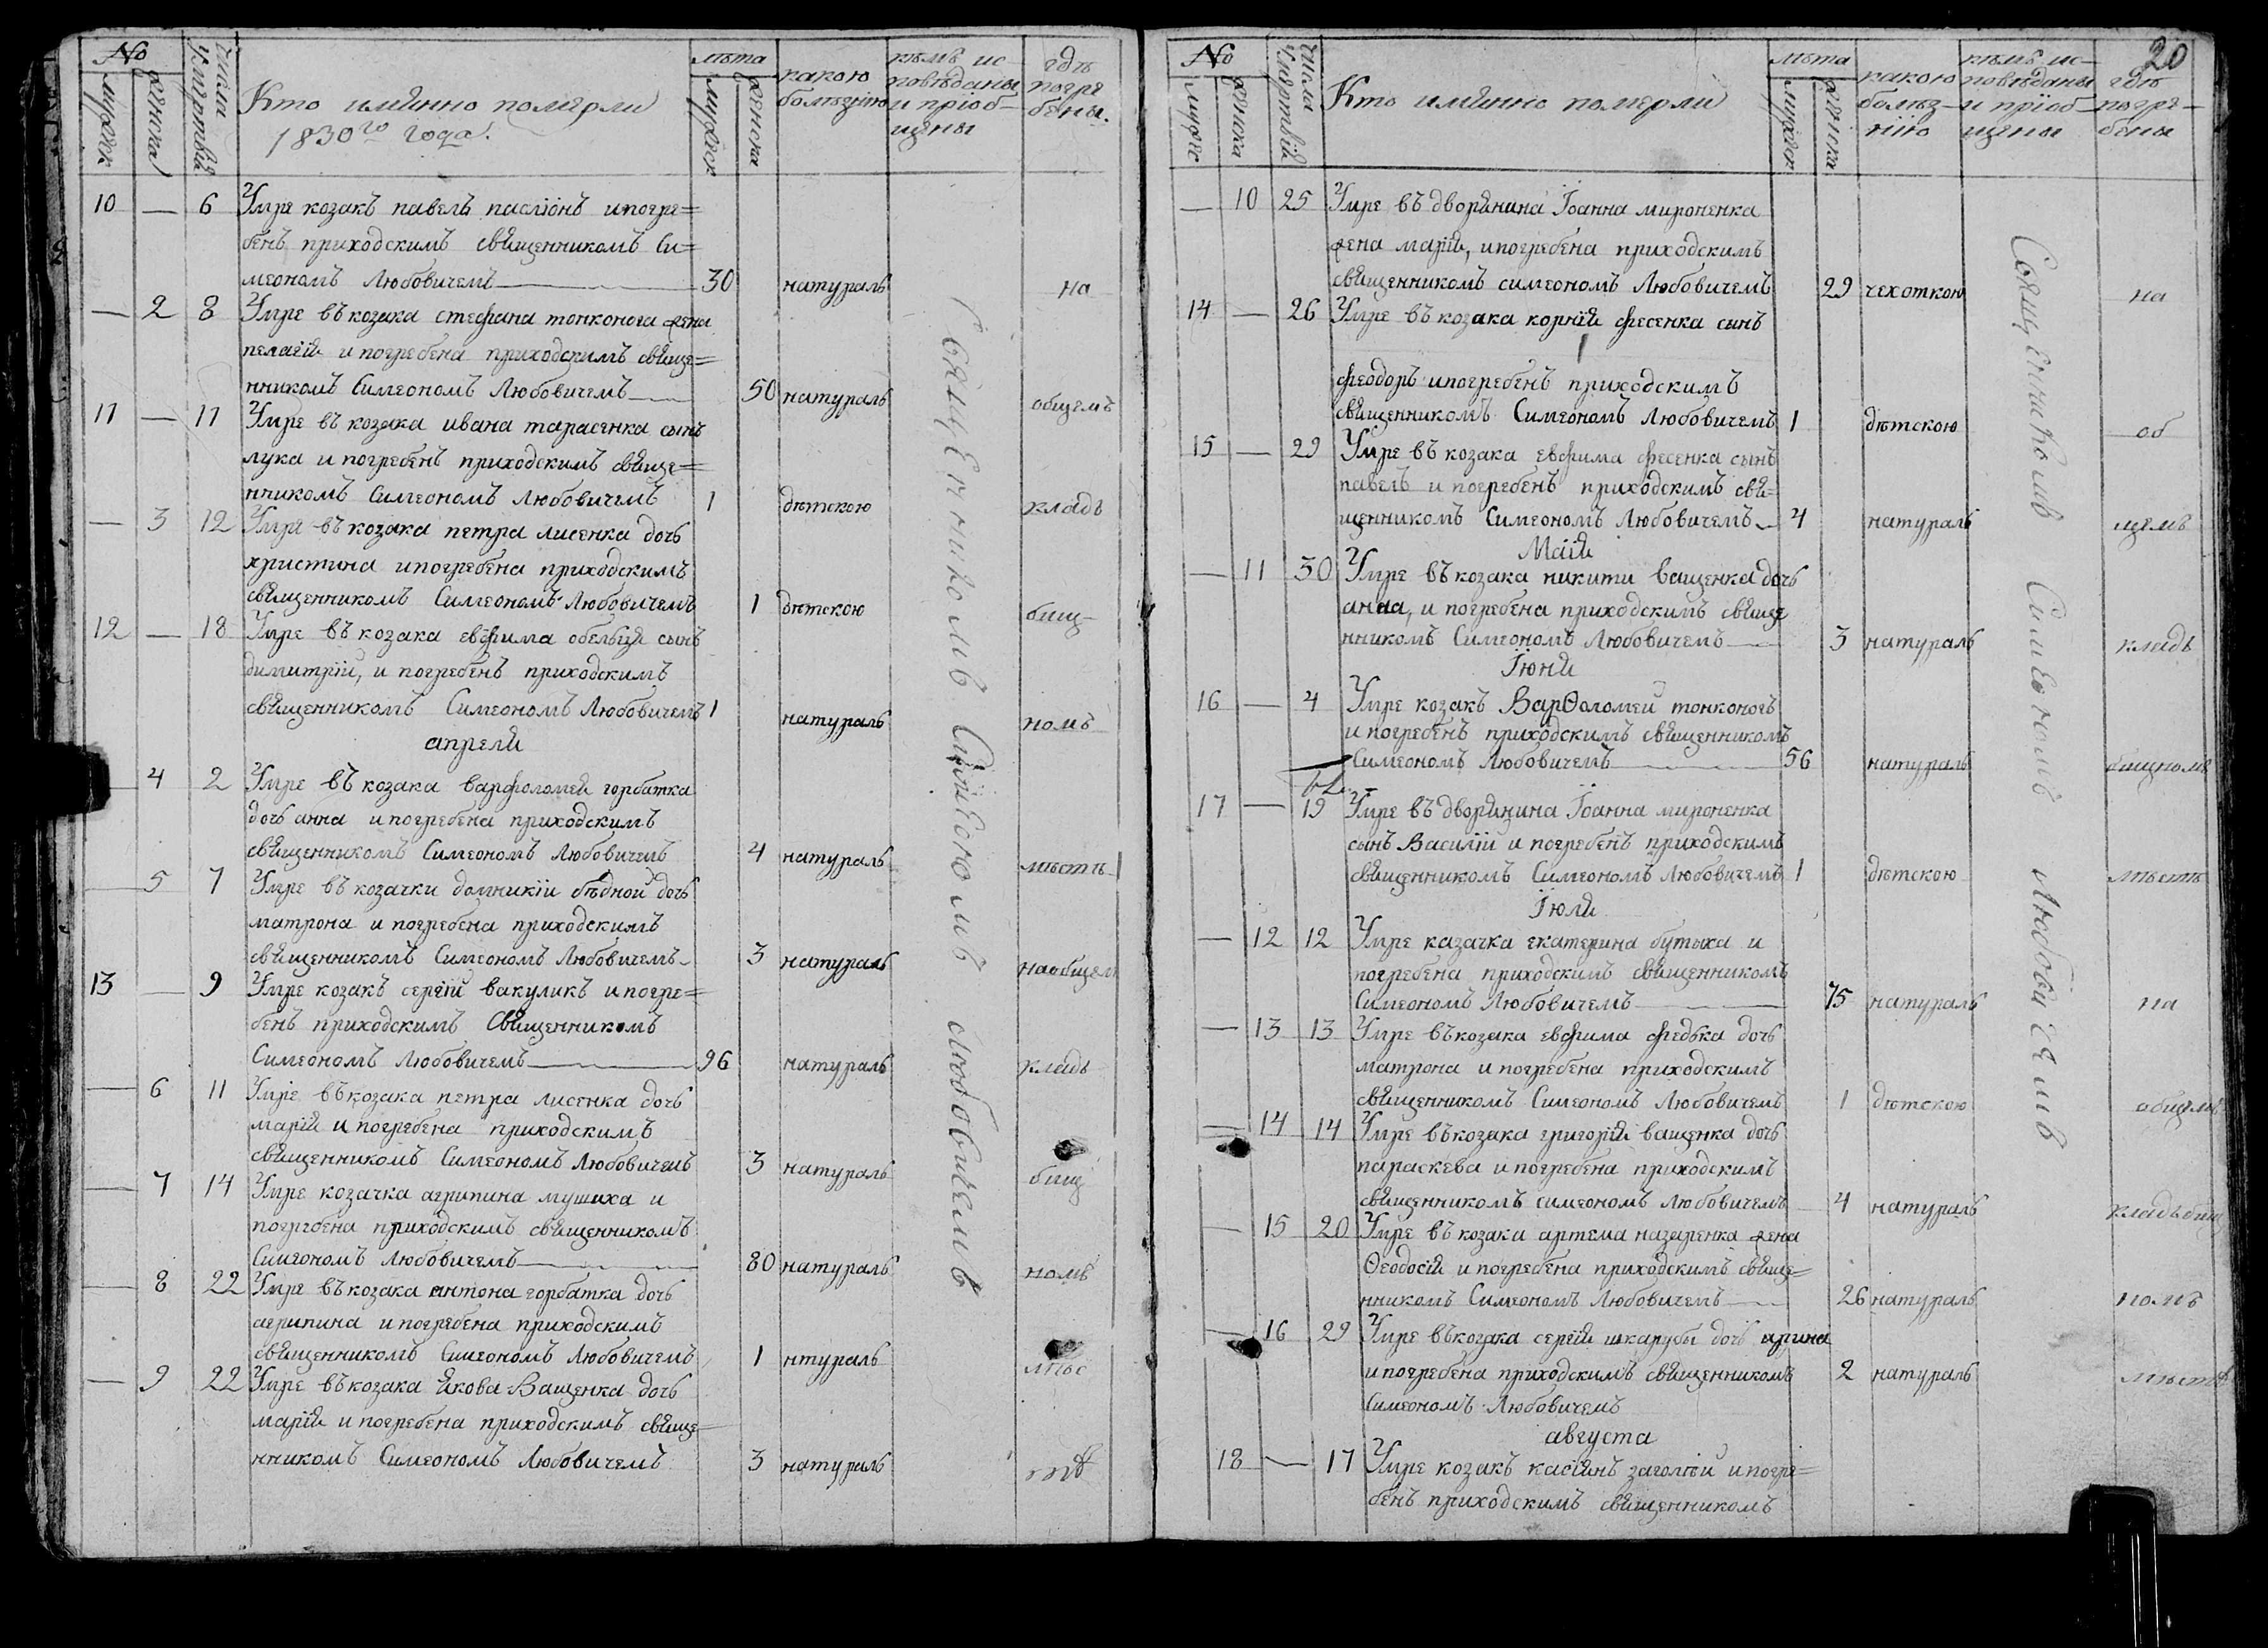 №
мужеск
женска
числа умертвій
Кто имянно померли
1830го года.
лѣта
мужеск
женска
какою
болѣзнію
кѣмъ ис-
повѣданы
и пріоб-
щены
гдѣ
погре
бены.
10 — 6 Умре козакъ павелъ пасліонъ ипогре=
бенъ приходскимъ священникомъ Си=
меономъ Любовичемъ 30 натураль на
— 2 8 Умре въ козака стефана тонконога жена
пелагія и погребена приходскимъ свяще=
нникомъ Симеономъ Любовичемъ 50 натураль общемъ
11 — 11 Умре въ козака ивана тарасенка сынъ
лука и погребенъ приходскимъ свяще=
нникомъ Симеономъ Любовичемъ 1 дѣтскою кладъ
— 3 12 Умре въ козака петра лисенка дочь
христина ипогребена приходскимъ
священникомъ Симеономъ Любовичемъ 1 дѣтскою бищ-
12 — 18 Умре въ козака евфима обельця сынъ
димитрій, и погребенъ приходскимъ
священникомъ Симеономъ Любовичемъ 1 натураль номъ
апреля
— 4 2 Умре въ козака варфоломея горбатка
дочь анна и погребена приходскимъ
священникомъ Симеономъ Любовичемъ 4 натураль мѣстѣ
— 5 7 Умре въ козачки домникіи бѣдной дочь
матрона и погребена приходскимъ
священникомъ Симеономъ Любовичемъ 3 натураль наобщем
13 — 9 Умре козакъ сергій вакуликъ и погре=
бенъ приходскимъ Священникомъ
Симеономъ Любовичемъ 96 натураль кладь
— 6 11 Умре въ козака петра лисенка дочь
марія и погребена приходскимъ
священникомъ Симеономъ Любовичемъ 3 натураль бищ
— 7 14 Умре козачка агрипина мушиха и
погребена приходскимъ священникомъ
Симеономъ Любовичемъ 80 натураль номъ
— 8 22 Умре въ козака антона горбатка дочь
агрипина и погребена приходскимъ
священникомъ Симеономъ Любовичемъ 1 нтураль мѣс
— 9 22 Умре въ козака Якова Ващенка дочь
марія и погребена приходскимъ свяще-
нникомъ Симеономъ Любовичемъ 3 натураль тѣ
Священникомъ Симеономъ Любовичемъ
20
№
мужес
женска
числа умертвій
Кто имянно померли
лѣта
мужеск
женска
какою
болѣз-
нію
кѣмъ ис-
повѣданы
и пріоб-
щены
гдѣ
погре-
бены
— 10 25 Умре въ дворянина Іоанна мироненка
жена марія, ипогребена приходскимъ
священникомъ симеономъ Любовичемъ 29 чехоткою на
14 — 26 Умре въ козака корнія фесенка сынъ
феодоръ ипогребенъ приходскимъ
священникомъ Симеономъ Любовичемъ 1 дѣтскою об
15 — 29 Умре въ козака евфима фесенка сынъ
павелъ и погребенъ приходскимъ свя=
щенникомъ Симеономъ Любовичемъ 4 натураль щемъ
Маія
— 11 30 Умре въ козака никити ващенка дочь
анна, и погребена приходскимъ свяще
нникомъ Симеономъ Любовичемъ 3 натураль кладъ
Іюня
16 — 4 Умре козакъ Варѳоломей тонконогъ
и погребенъ приходскимъ священникомъ
Симеономъ Любовичемъ 56 натураль бищномъ
17 — 19 Умре въ дворянина Іоанна мироненка
сынъ Василій и погребенъ приходскимъ
священникомъ Симеономъ Любовичемъ 1 дѣтскою мѣстѣ
Іюля
— 12 12 Умре казачка екатерина бутыха и
погребена приходскимъ священникомъ
Симеономъ Любовичемъ 75 натураль на
— 13 13 Умре въ козака евфима федька дочь
матрона и погребена приходскимъ
священникомъ Симеономъ Любовичемъ 1 дѣтскою общемъ
— 14 14 Умре въ козака григорія ващенка дочь
параскева и погребена приходскимъ
священникомъ симеономъ Любовичемъ 4 натураль кладьбищ
— 15 20 Умре въ козака артема назаренка жена
Ѳеодосія и погребена приходскимъ свяще=
нникомъ Симеономъ Любовичемъ 26 натураль номъ
— 16 29 Умре въ козака сергія шкарубы дочь ирина
и погребена приходскимъ священникомъ 2 натураль мѣстѣ
Симеономъ Любовичемъ
августа
18 — 17 Умре козакъ касіянъ заголѣй и погре=
бенъ приходскимъ священникомъ
Священникомъ Симеономъ Любовичемъ